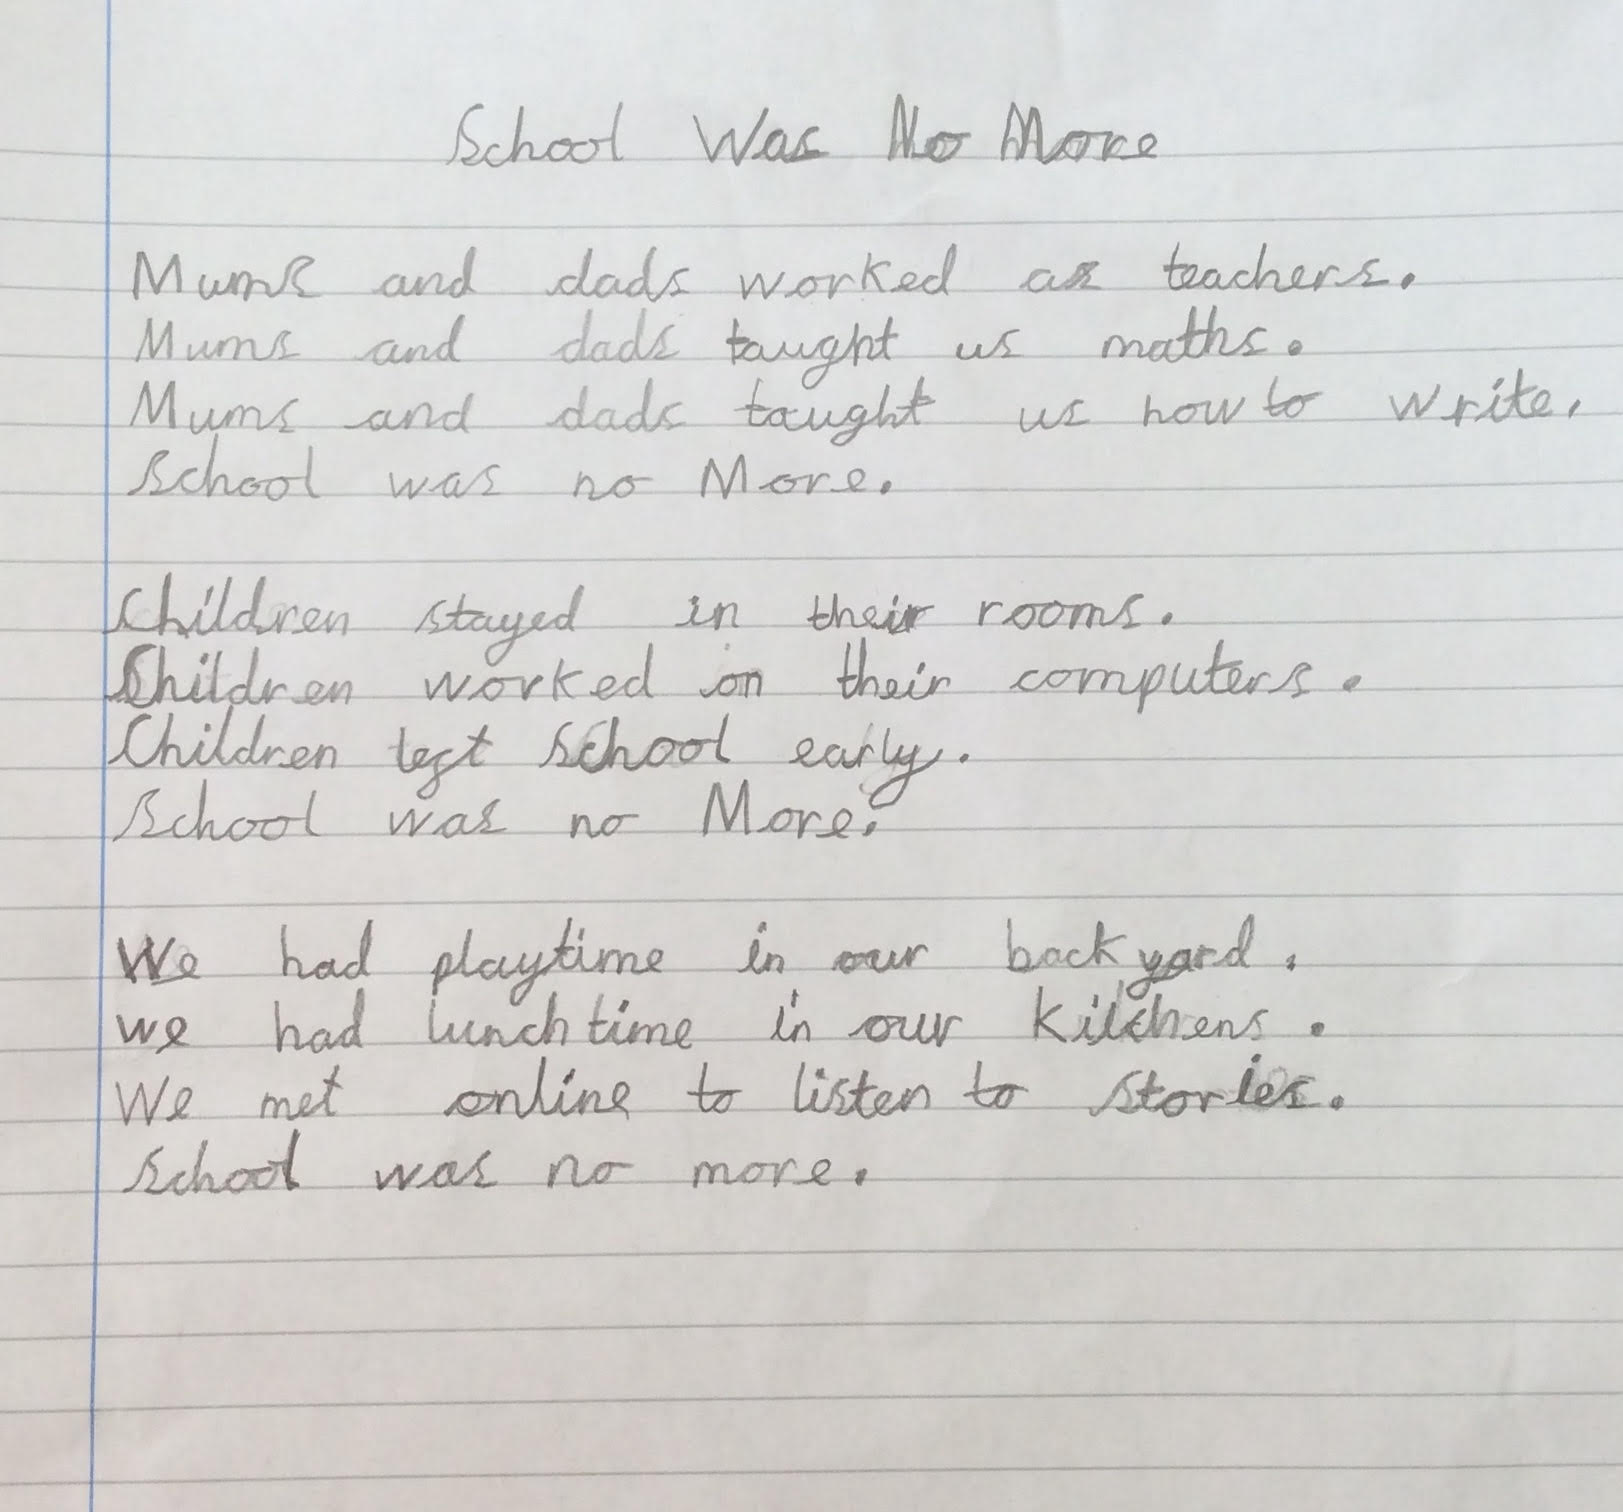 School Was No More
Mums and dads worked as teachers.
Mums and dads taught us maths.
Mums and dads taught us how to write.
School was no More.
Children stayed in their rooms.
Children worked on their computers.
Children left school early.
School was no More.
We had playtime in our back yard.
we had lunchtime in our kitchens.
We met online to listen to stories.
School was no more.